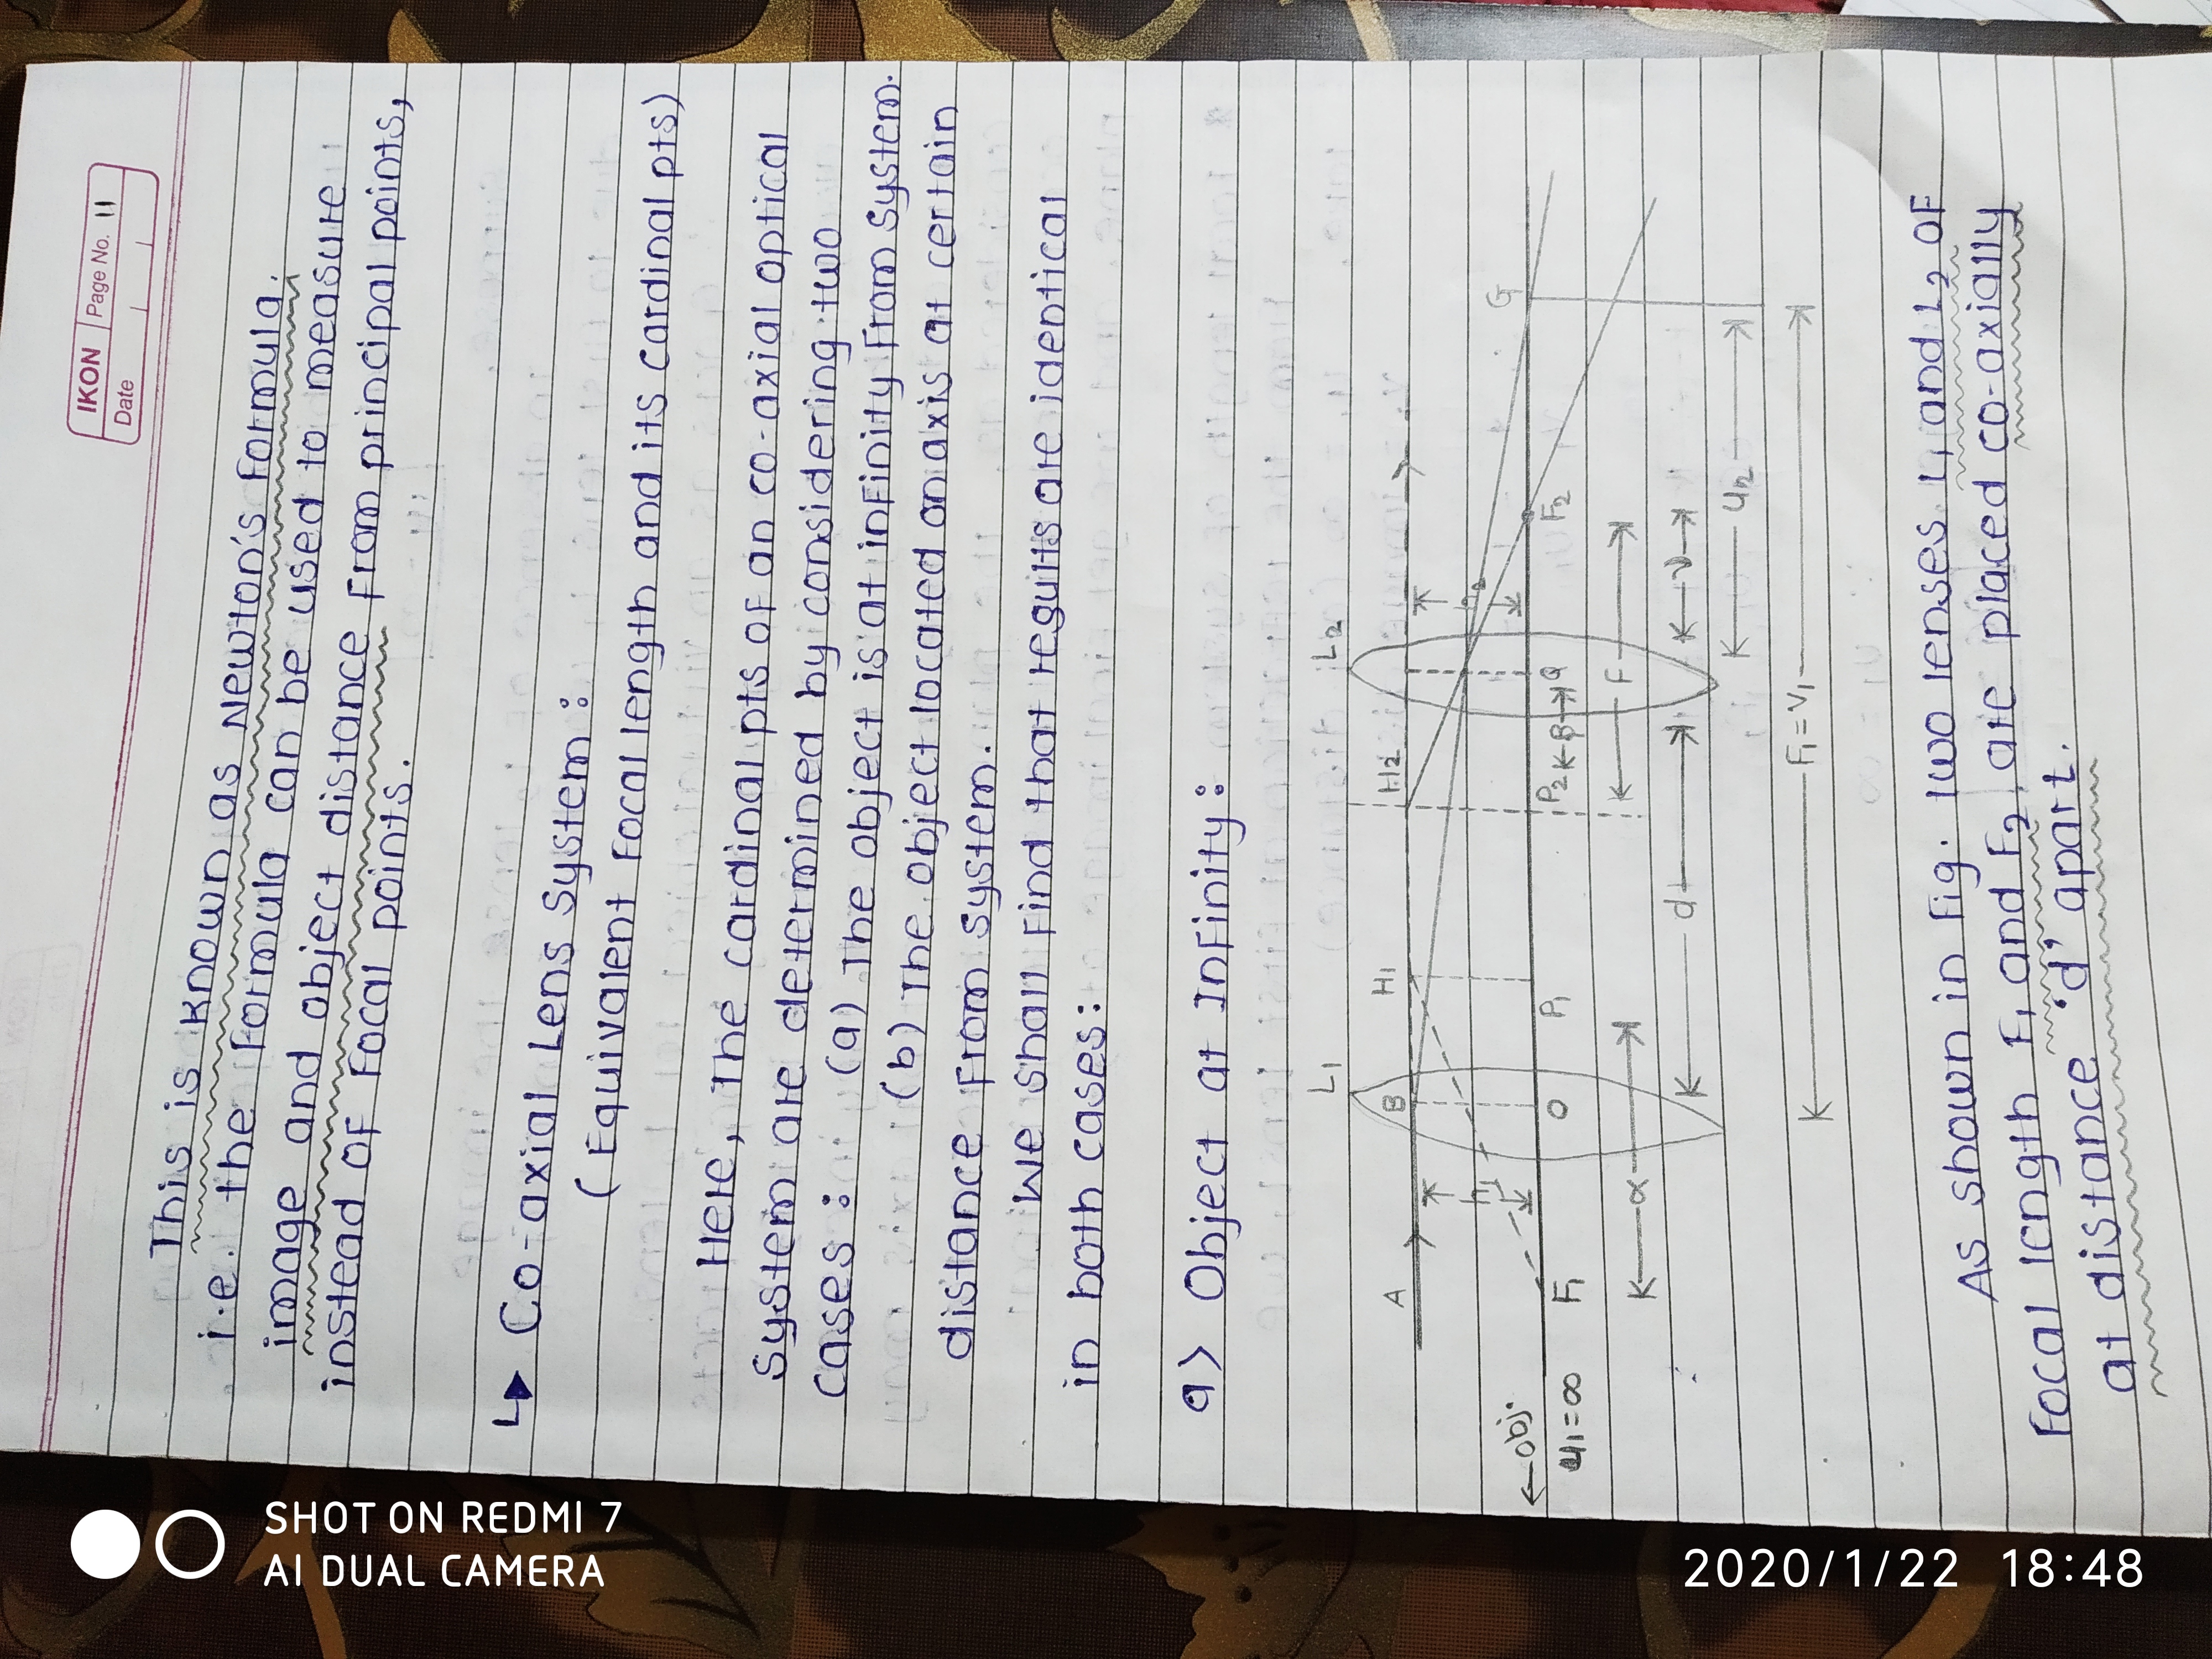 IKON Page No. 11
Date
This is known as Newton's formula.
i.e. the formula can be used to measure
image and object distance from principal points,
instead of focal points.
↳ Co-axial Lens System :
( Equivalent focal length and its cardinal pts)
Here, The cardinal pts of an co-axial optical
system are determined by considering two
cases : (a) The object is at infinity from system.
(b) The object located on axis at certain
distance from system.
We shall find that reguits are identical
in both cases:
a> Object at Infinity:
L1 L2
A B H1 H2
h1 h2 G
←obj. F1 O P1 P2 K β→ Q F2
u1=∞
α F
d v
u2
F1=v1
As shown in Fig. two lenses L1 and L2 of
focal length F1 and F2, are placed co-axially
at distance 'd' apart.
SHOT ON REDMI 7
AI DUAL CAMERA
2020/1/22 18:48